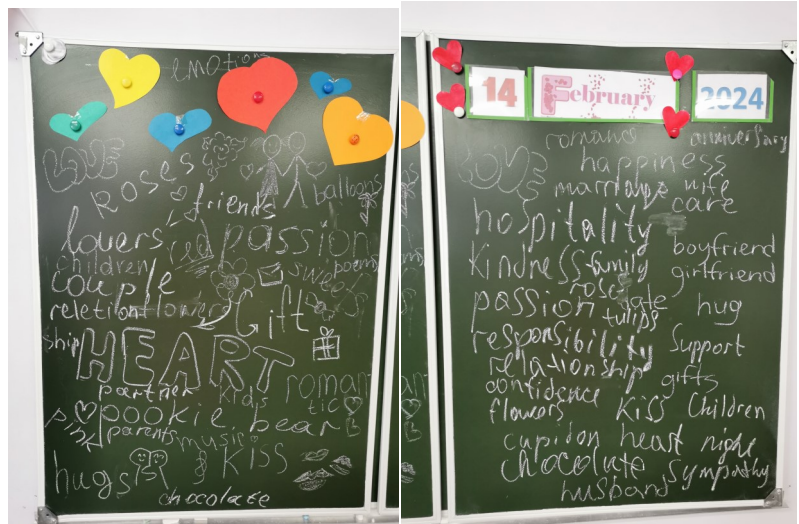 emotions
LOVE
Roses
friends
balloons
lovers
red
passion
children
sweet
poems
couple
reletion
ship
flower
Gift
HEART
partner
kids
roman
tic
pookie bear
pink
parents
music
kiss
hugs
chocolate
14 February 2024
romans anniversary
LOVE happiness
marriage wife
care
hospitality
boyfriend
kindness family girlfriend
roses
passion date hug
tulips
responsibility support
relationship
confidence gifts
flowers kiss Children
cupidon heart night
chocolate sympathy
husband